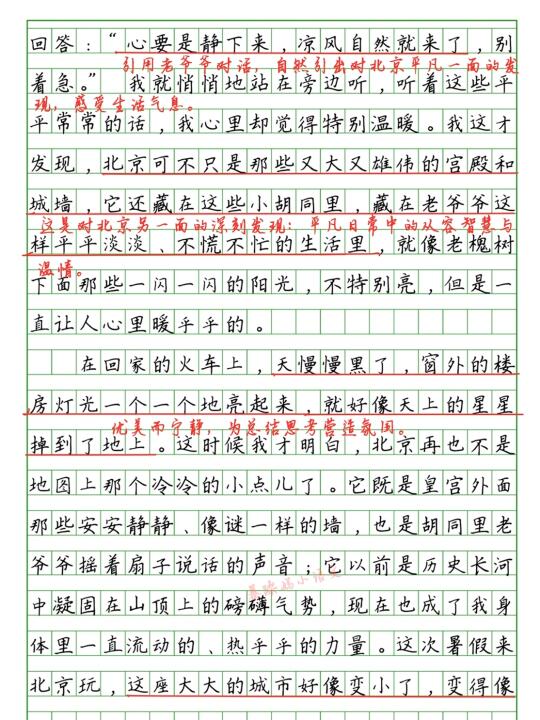 回答：“心要是静下来，凉风自然就来了，别
引用老爷爷对话，自然引出对北京平凡一面的发
着急。”　我就悄悄地站在旁边听，听着这些平
现，感受生活气息。
平常常的话，我心里却觉得特别温暖。我这才
发现，北京可不只是那些又大又雄伟的宫殿和
城墙，它还藏在这些小胡同里，藏在老爷爷这
这是对北京另一面的深刻发现：平凡日常中的从容智慧与
样平平淡淡、不慌不忙的生活里，就像老槐树
温情。
下面那些一闪一闪的阳光，不特别亮，但是一
直让人心里暖乎乎的。
在回家的火车上，天慢慢黑了，窗外的楼
房灯光一个一个地亮起来，就好像天上的星星
优美而宁静，为总结思考营造氛围。
掉到了地上。这时候我才明白，北京再也不是
地图上那个冷冷的小点儿了。它既是皇宫外面
那些安安静静、像谜一样的墙，也是胡同里老
爷爷摇着扇子说话的声音；它以前是历史长河
中凝固在山顶上的磅礴气势，现在也成了我身
体里一直流动的、热乎乎的力量。这次暑假来
北京玩，这座大大的城市好像变小了，变得像